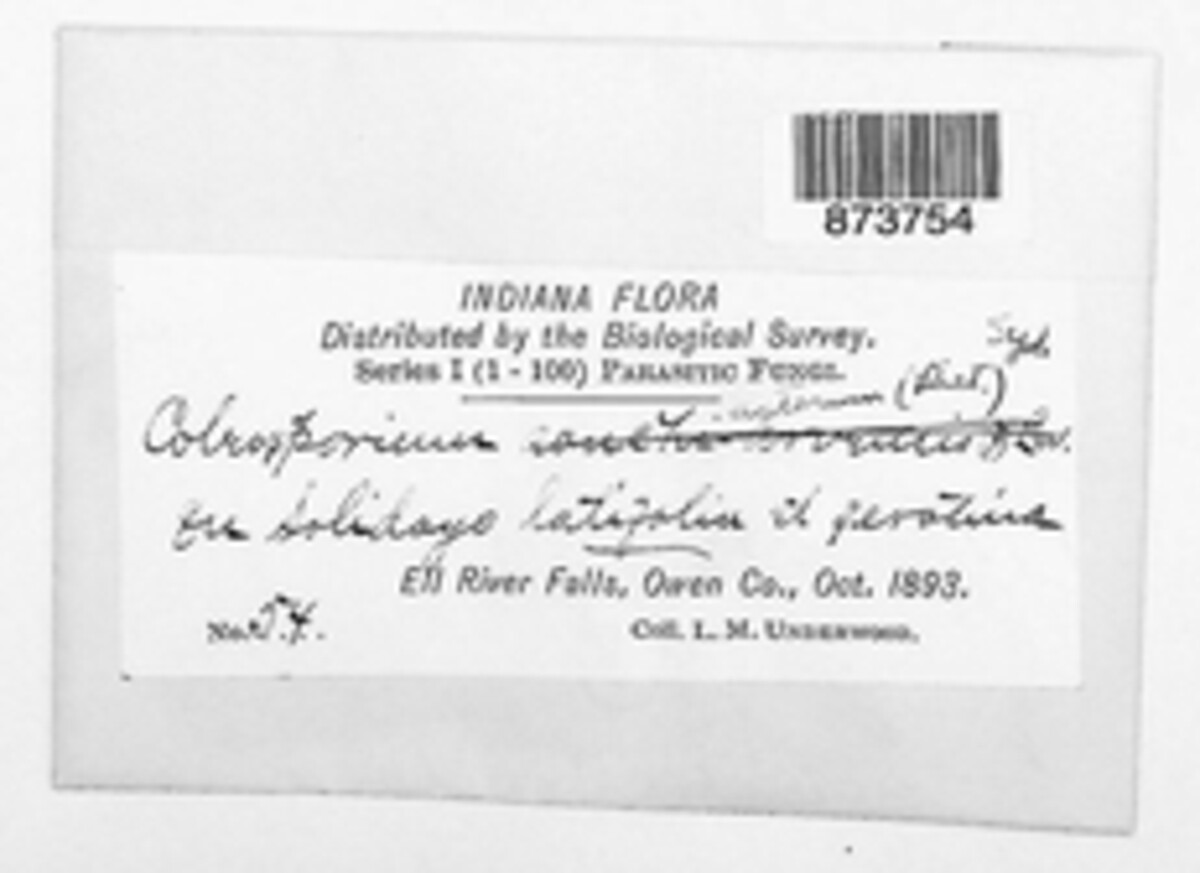 873754
INDIANA FLORA
Distributed by the Biological Survey.
Series I (1 - 100) PARASITIC FUNGI.
Syd.
(Diet.)
Coleosporium
on Solidago latifolia et serotina
Ell River Falls, Owen Co., Oct. 1893.
No. 54.
Coll. L. M. UNDERWOOD.